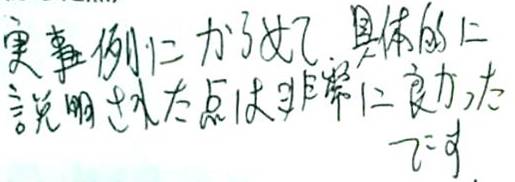 実事例にからめて、具体的に
説明された点は非常に良かった
です